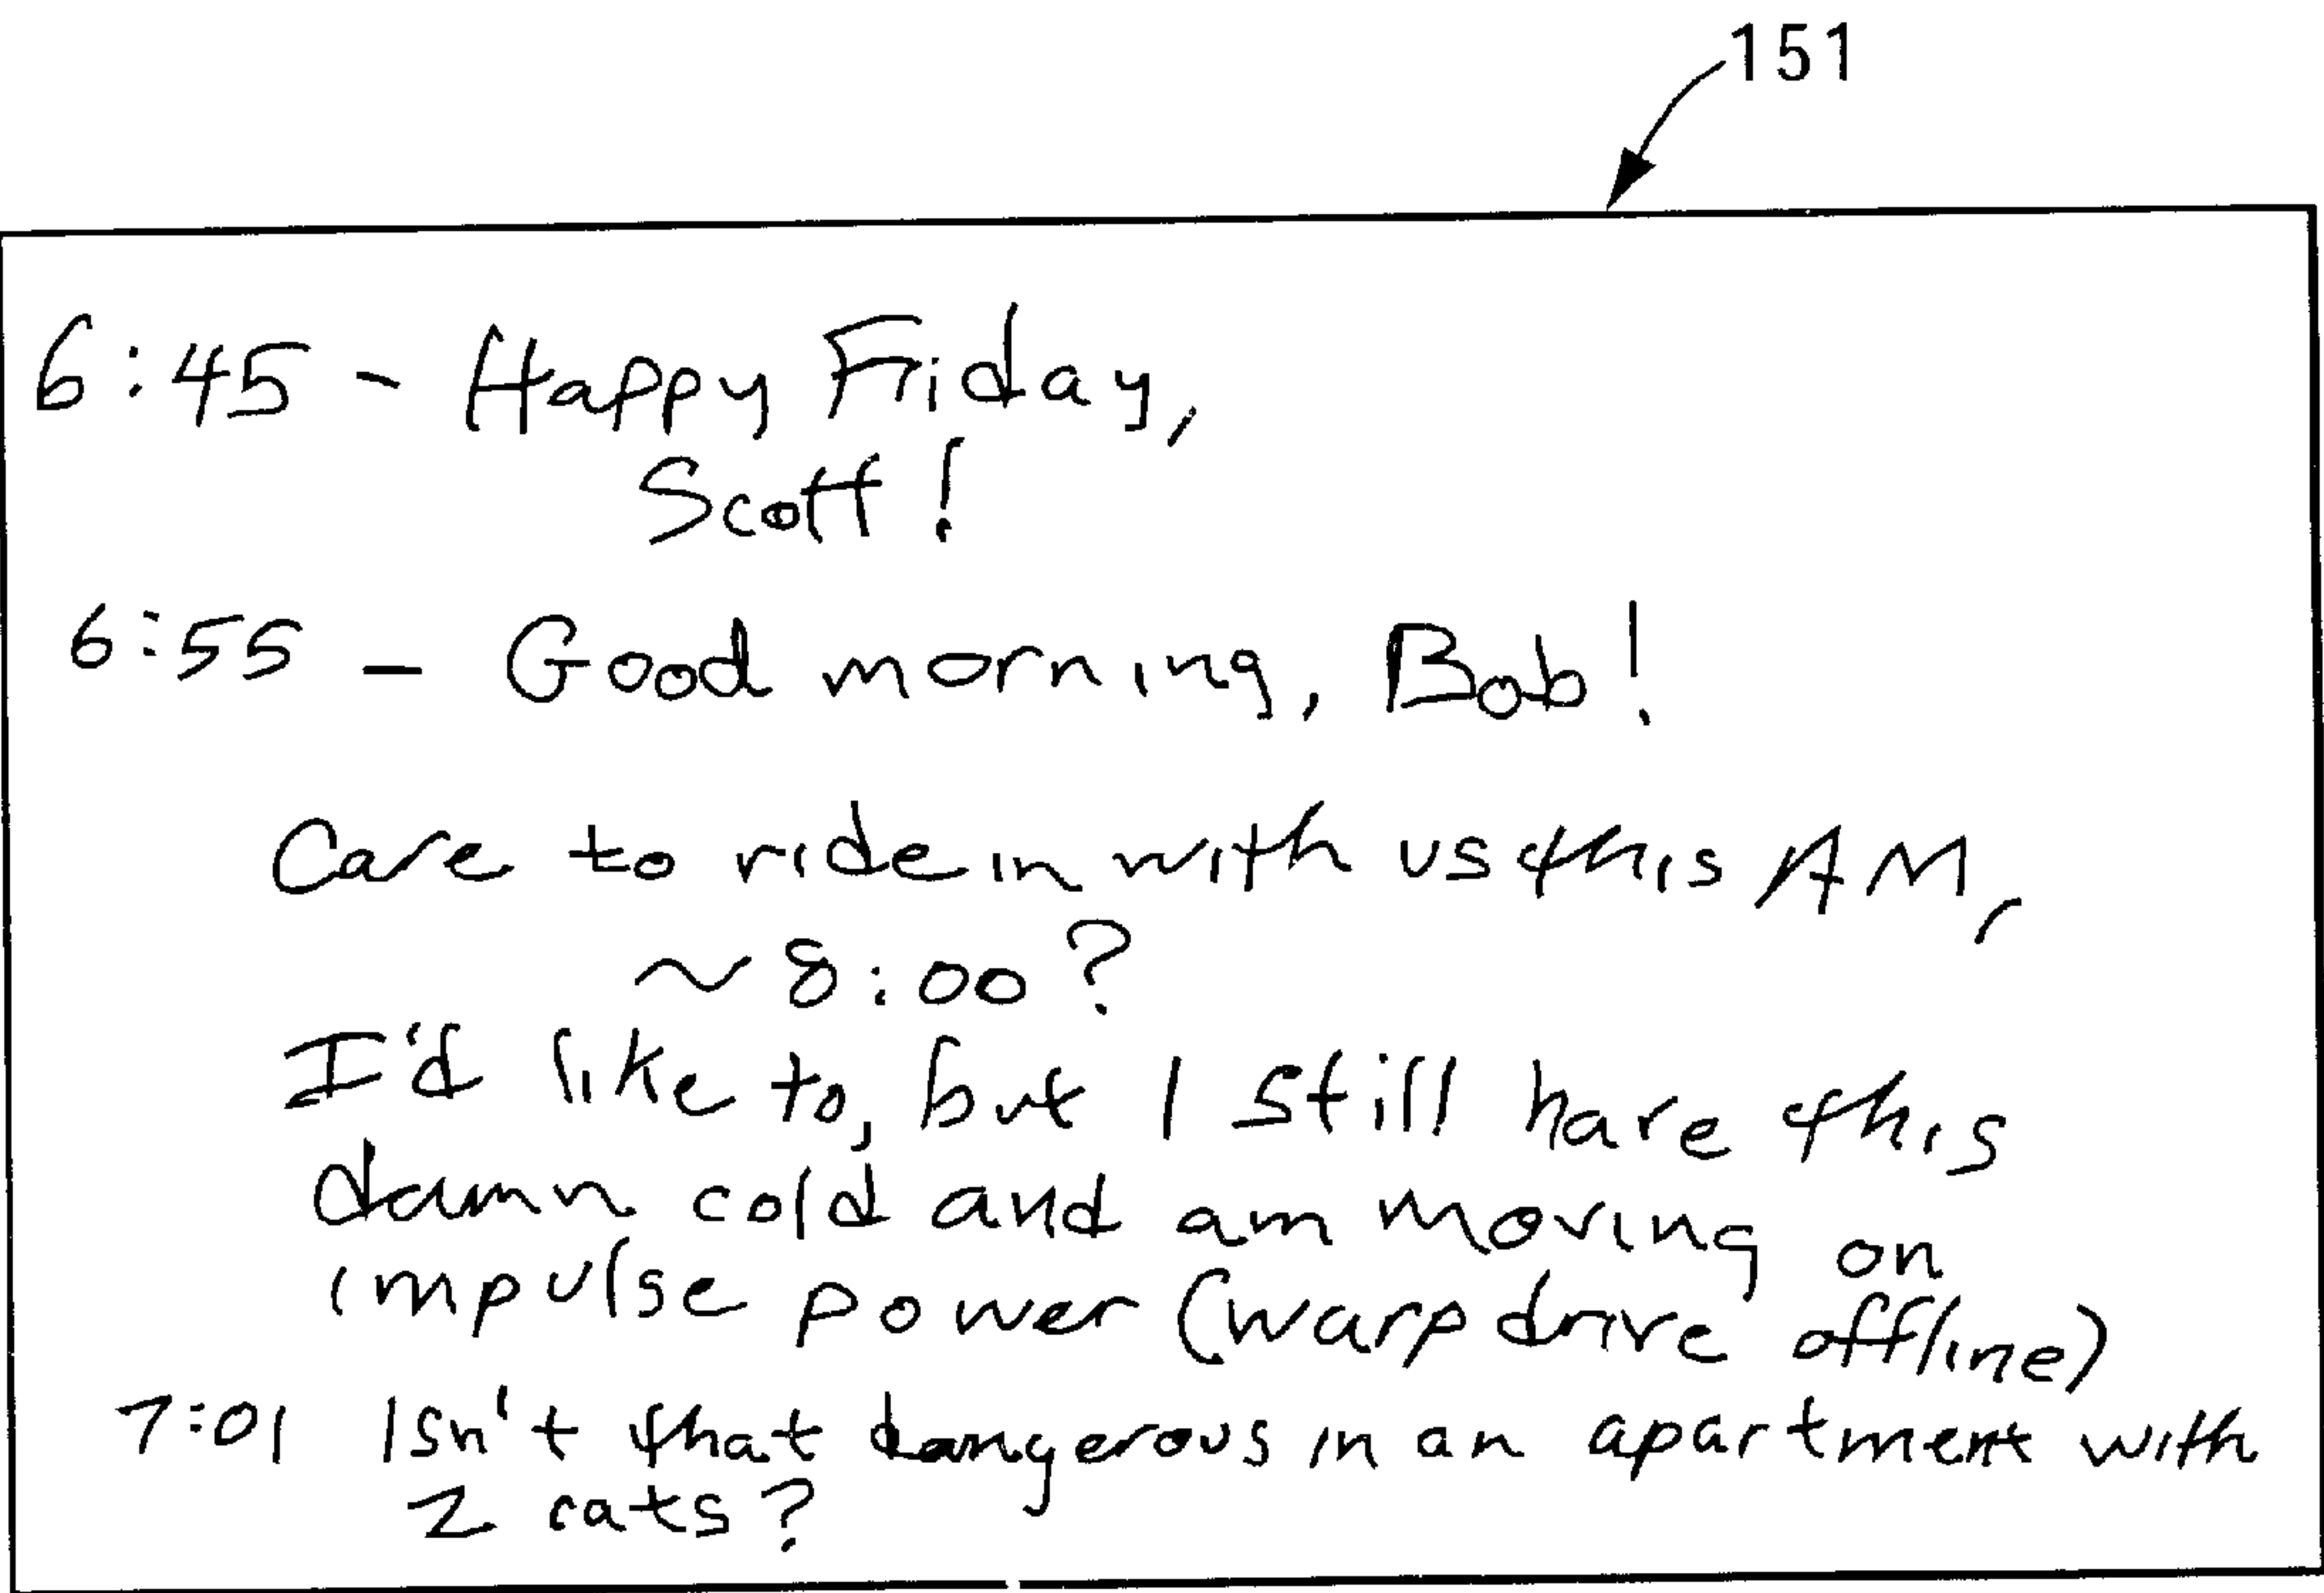 151
6:45 - Happy Friday,
Scott!
6:55 - Good morning, Bob!
Care to ride in with us this AM,
~ 8:00?
I'd like to, but I still have this
damn cold and am moving on
impulse power (warp drive offline)
7:01 Isn't that dangerous in an apartment with
2 cats?